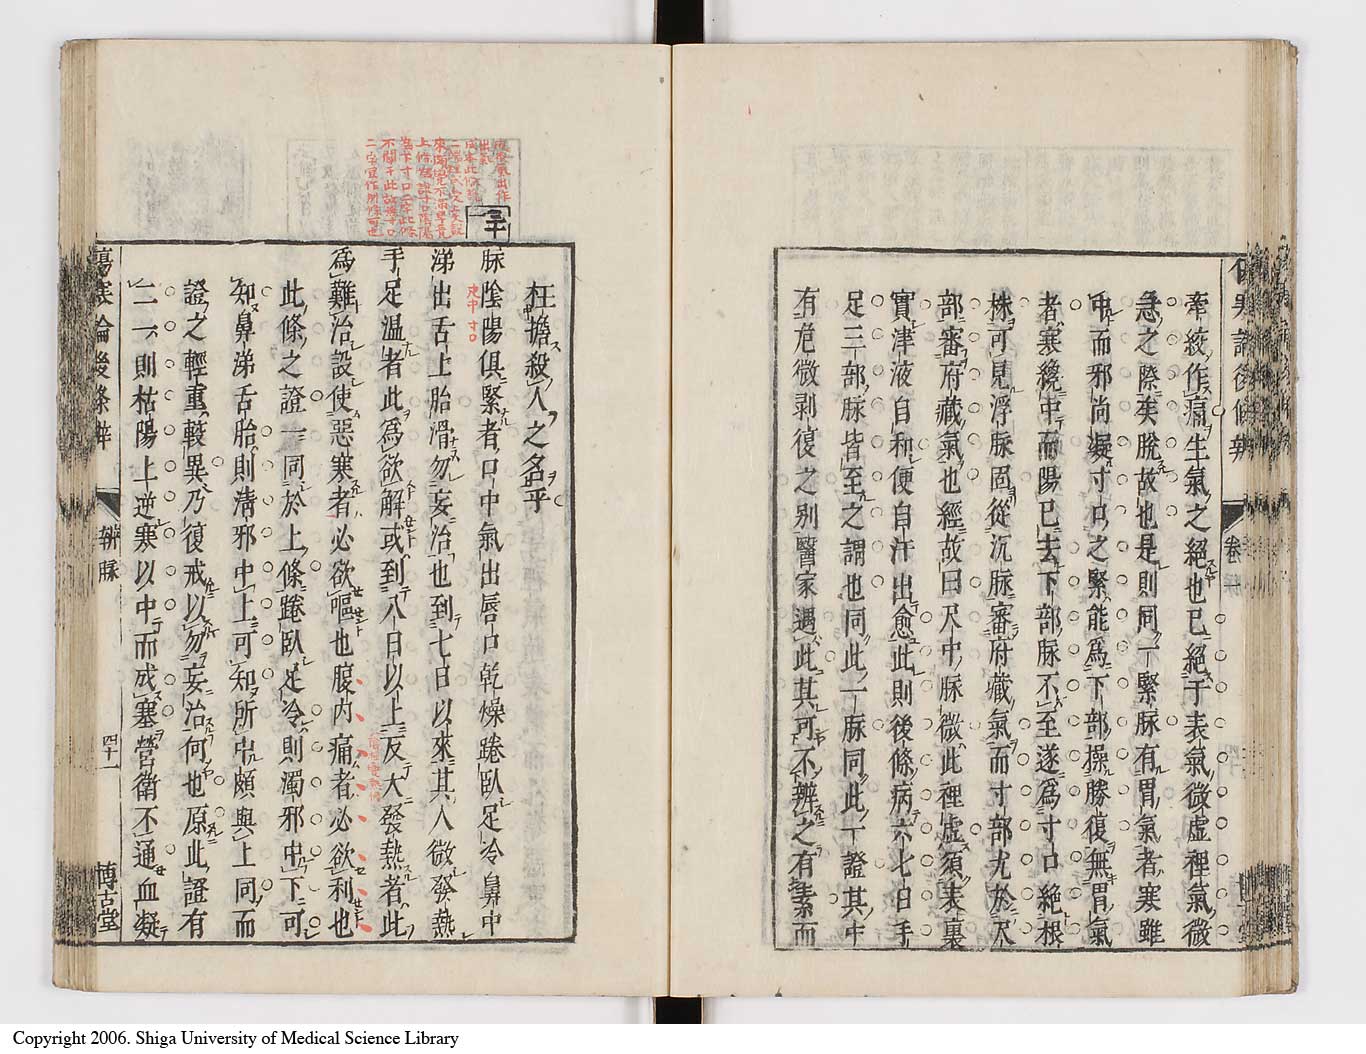 牽絞作痛生氣之絕也已絕于表氣微虛裡氣微
急之際矣脫故也是則同一緊脉有胃氣者寒雖
中而邪尚凝寸口之緊能爲下部操勝復無胃氣
者寒纔中而陽已去下部脉不至遂爲寸口絕根
株可見浮脉固從沉脉審府藏氣而寸部尤於尺
部審府藏氣也經故曰尺中脉微此裡虛須表裏
實津液自和便自汗出愈此則後條病六七日手
足三部脉皆至之謂也同此一脉同此一證其中
有危微剥復之别醫家遇此其可不辨之有素而
卷
枉擔殺人之名乎
三十
脉陰陽俱緊者口中氣出唇口乾燥踡臥足冷鼻中
涕出舌上胎滑勿妄治也到七日以來其人微發熱
手足溫者此爲欲解或到八日以上反大發熱者此
爲難治設使惡寒者必欲嘔也腹內痛者必欲利也
此條之證一同於上條踡臥足冷則濁邪中下可
知鼻涕舌胎則清邪中上可知所中頗與上同而
證之輕重較異乃復戒以勿妄治何也原此證有
二一則枯陽上逆寒以中而成塞營衛不通血凝
傷寒論後條辨
辨脉
四十一
博古堂
Copyright 2006. Shiga University of Medical Science Library